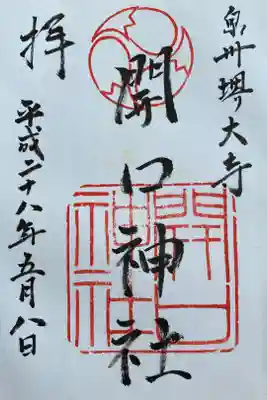 泉州堺大寺
開口神社
拝
平成二十八年五月八日
開口神社